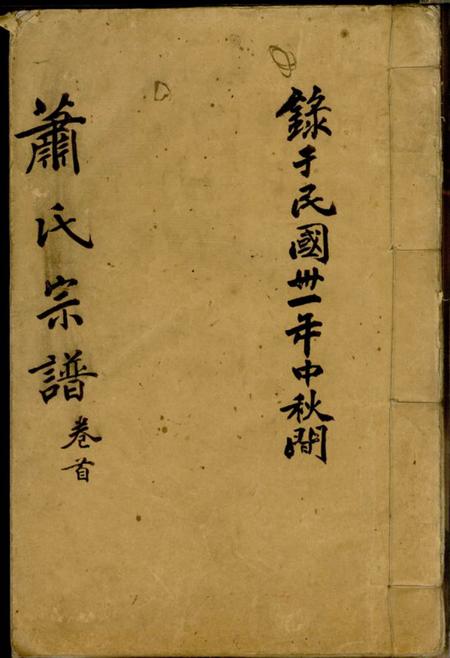 錄于民國卅一年中秋間
蕭氏宗譜卷首